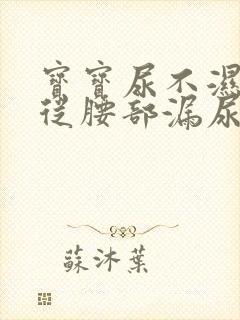 寶寶尿不濕
從腰部漏尿
蘇沐葉